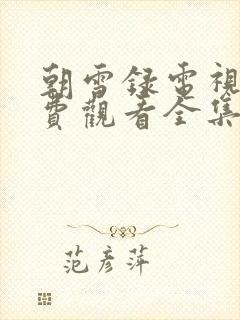 朝雪録電視
費觀看全集
范彦萍